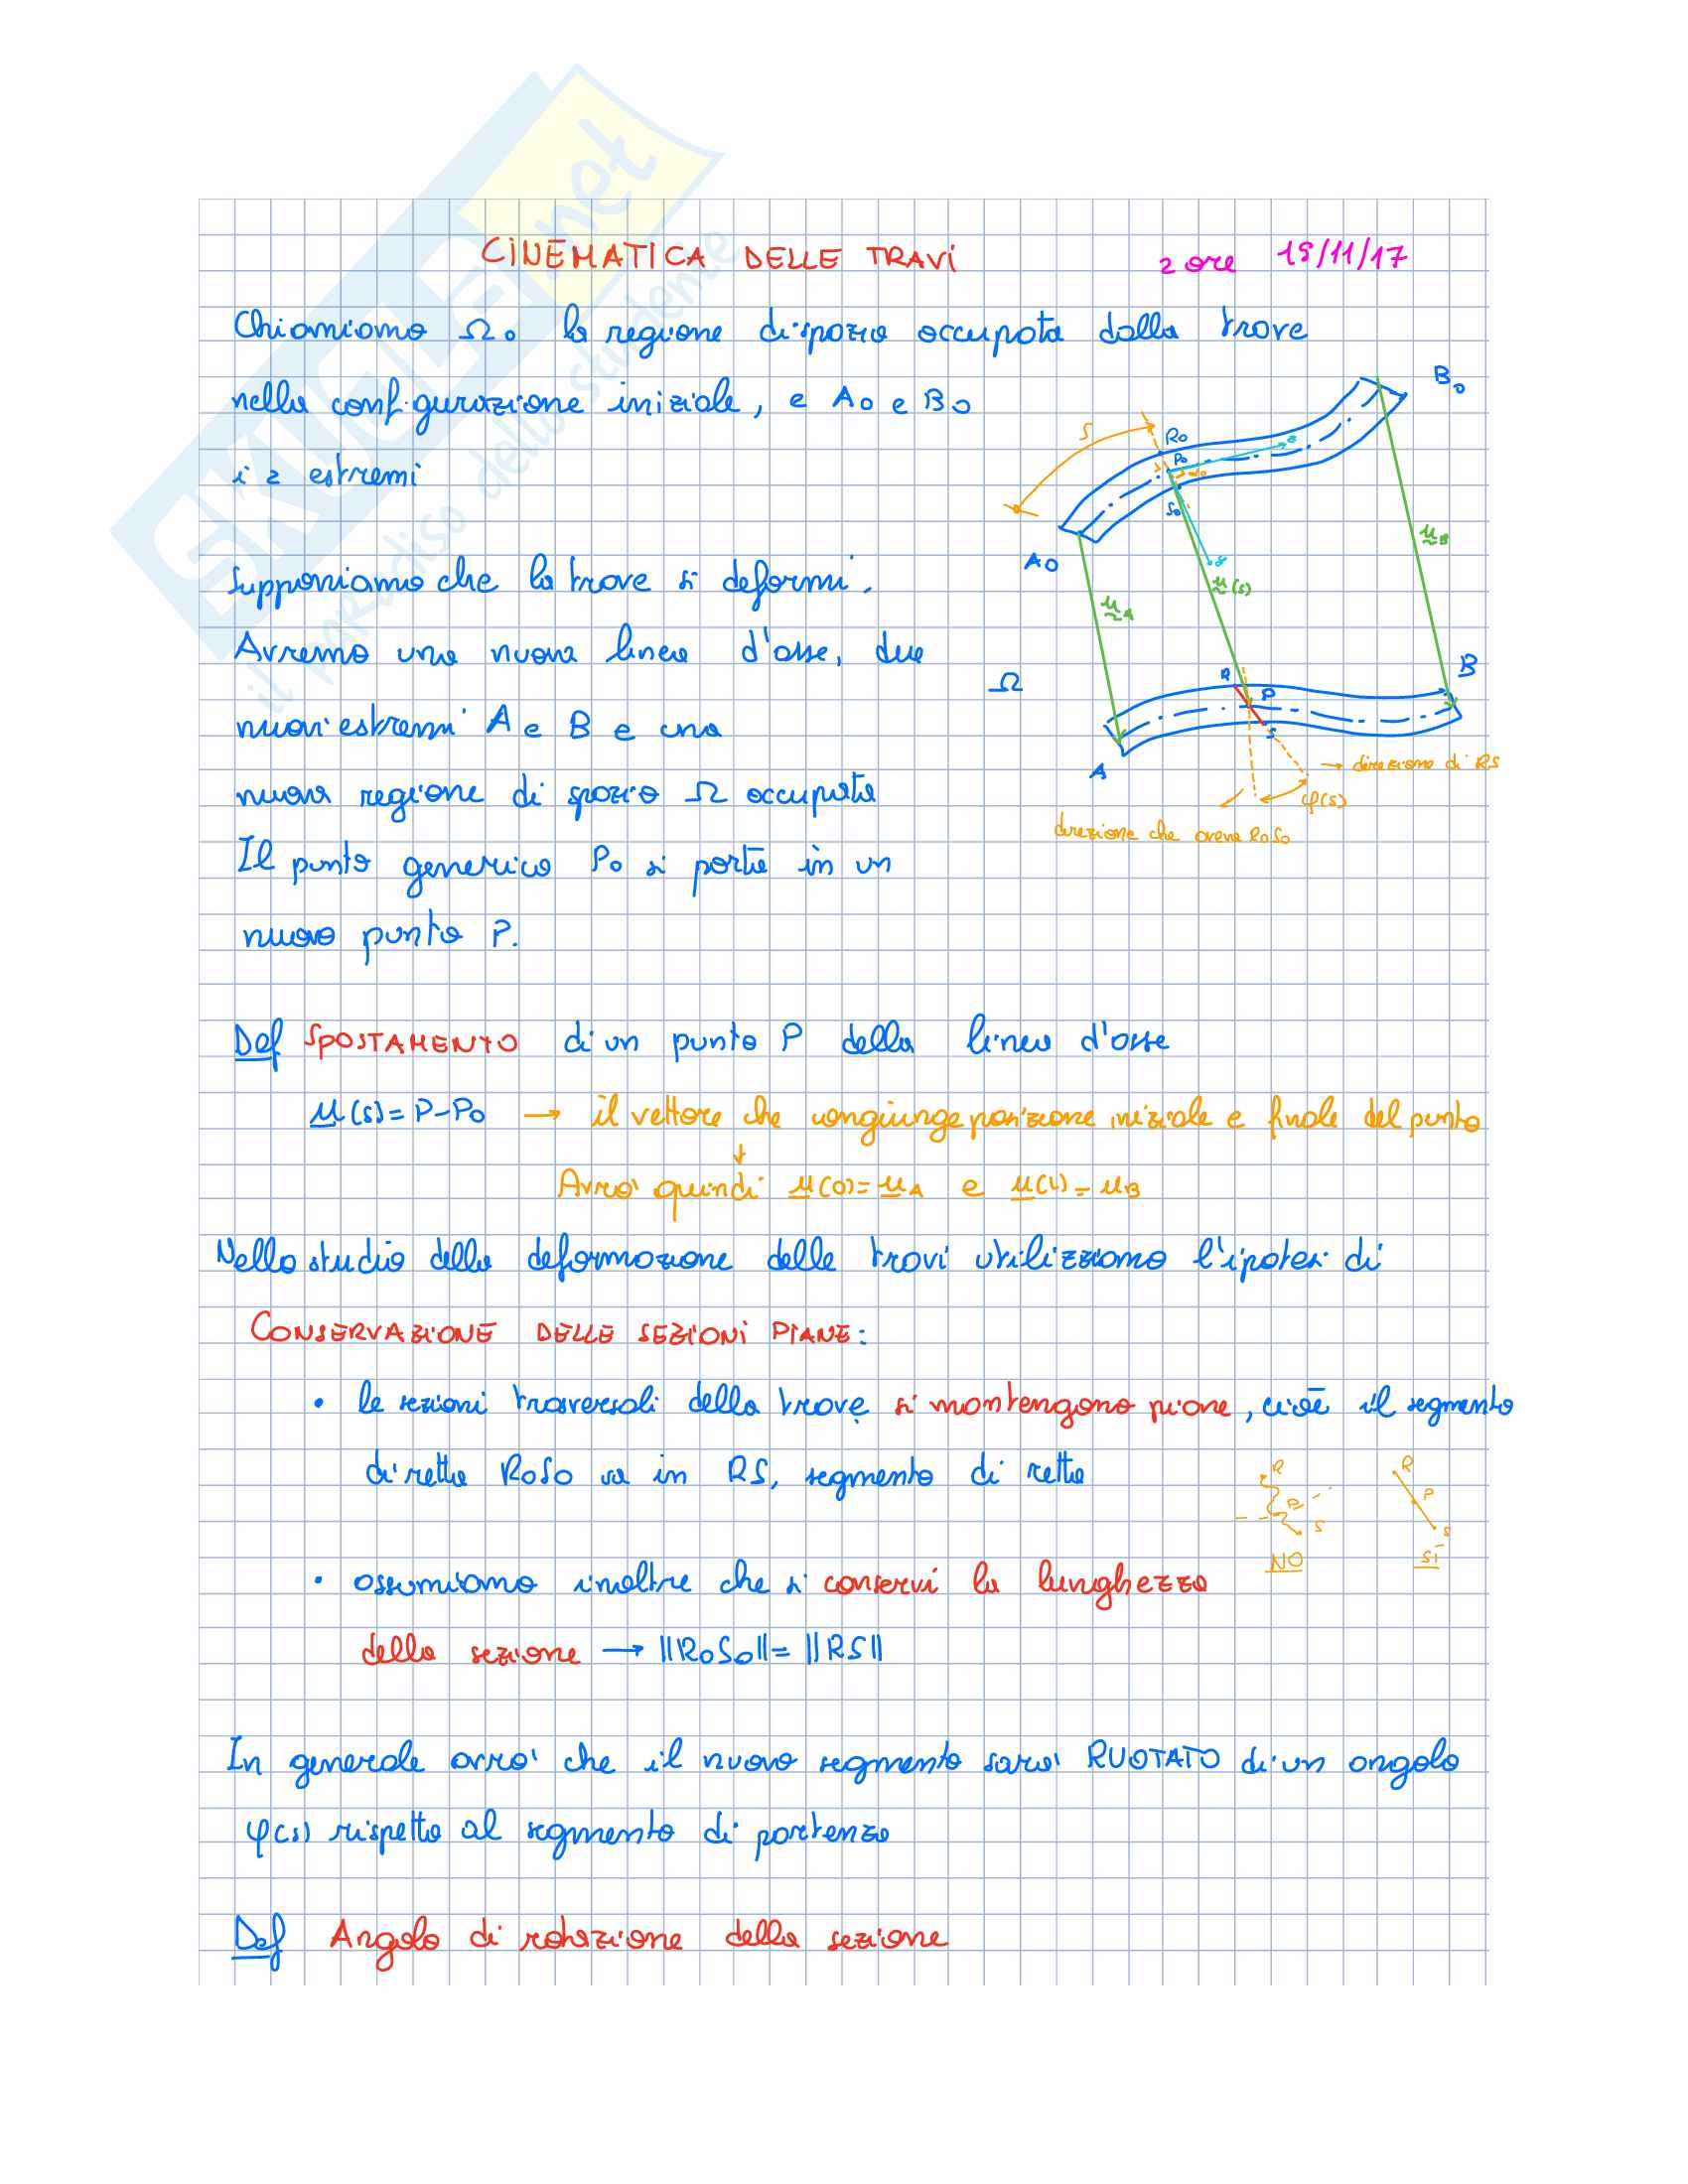 CINEMATICA DELLE TRAVI
2 ore 15/11/17
Chiamiamo Ω0 la regione di spazio occupata dalla trave
nella configurazione iniziale, e A0 e B0
i 2 estremi
Supponiamo che la trave si deformi.
Avremo una nuova linea d'asse, due
nuovi estremi A e B e una
nuova regione di spazio Ω occupata
Il punto generico P0 si porta in un
nuovo punto P.
B0
S
R0
P0
z
S0
A0
y
u(s)
uA
uB
Ω
R
P
B
S
A
→ direzione di RS
φ(s)
direzione che aveva R0S0
Def SPOSTAMENTO di un punto P della linea d'asse
u(s) = P-P0 → il vettore che congiunge posizione iniziale e finale del punto
Avrò quindi u(0) = uA e u(L) = uB
Nello studio della deformazione delle travi utilizziamo l'ipotesi di
CONSERVAZIONE DELLE SEZIONI PIANE:
• le sezioni trasversali della trave si mantengono piane, cioè il segmento
di retta R0S0 va in RS, segmento di retta
R
P
S
NO
R
P
S
SÌ
• assumiamo inoltre che si conservi la lunghezza
della sezione → ||R0S0|| = ||RS||
In generale avrò che il nuovo segmento sarà RUOTATO di un angolo
φ(s) rispetto al segmento di partenza
Def Angolo di rotazione della sezione
SKUOLA.net
il paradiso dello studente